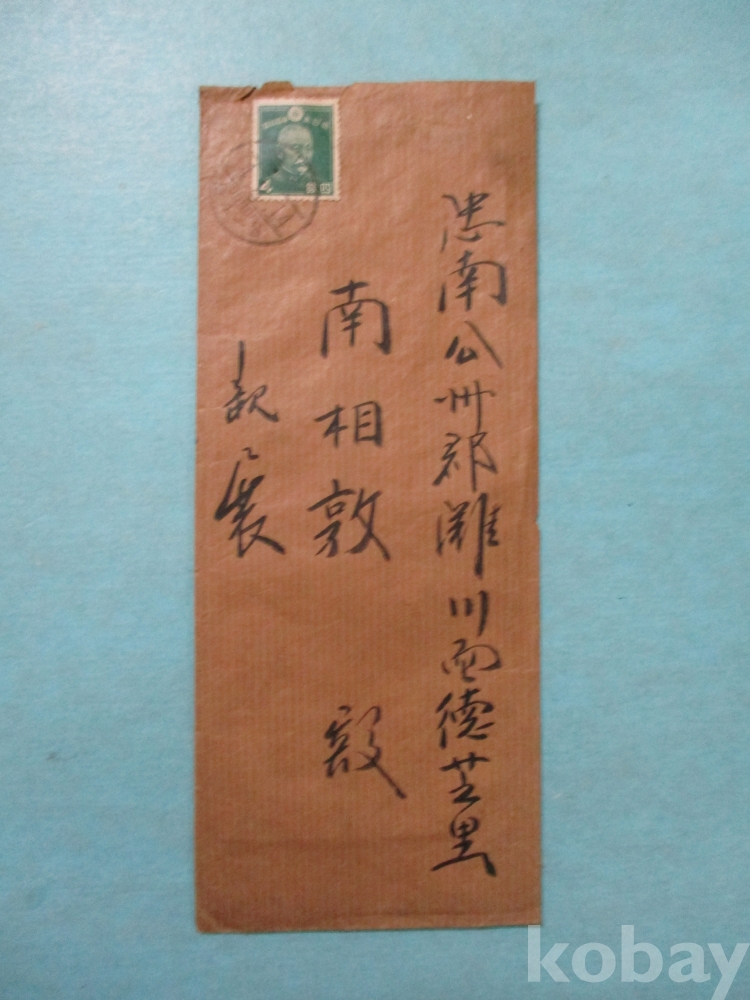 忠南公州郡灘川面德芝里
南相敦 殿
親展
4
kobay